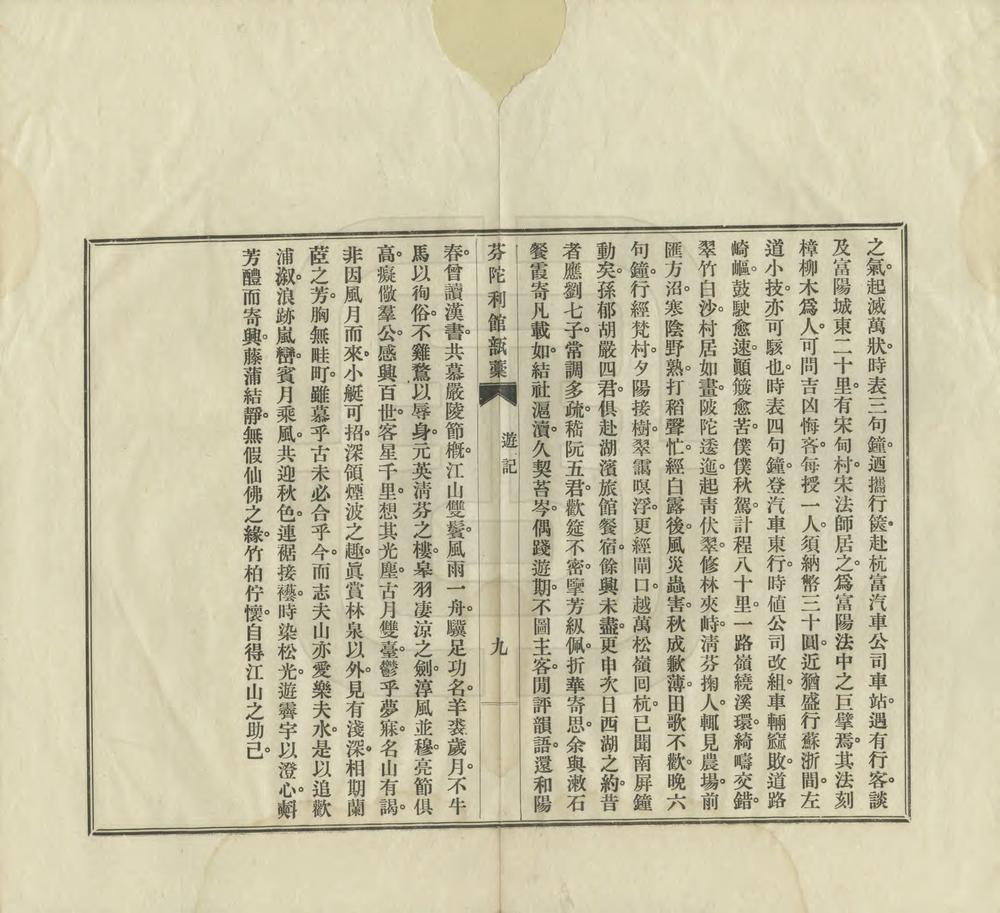 之氣。起滅萬狀。時表三句鐘。迺攜行篋。赴杭富汽車公司車站。遇有行客談
及富陽城東二十里。有宋甸村。宋法師居之。爲富陽法中之巨擘焉。其法刻
樟柳木爲人。可問吉凶悔吝。每授一人。須納幣三十圓。近猶盛行蘇浙間。左
道小技。亦可駭也。時表四句鐘。登汽車東行。時値公司改組。車輛窳敗。道路
崎嶇。鼓駛愈速。顚簸愈苦。僕僕秋駕。計程八十里。一路嶺繞溪環。綺疇交錯。
翠竹白沙。村居如畫。陂陀逶迤。起靑伏翠。修林夾峙。淸芬掬人。輒見農場前
匯方沼。寒陰野熟。打稻聲忙。經白露後。風災蟲害。秋成歉薄。田歌不歡。晚六
句鐘。行經梵村。夕陽接樹。翠靄暝浮。更經閘口。越萬松嶺回杭。已聞南屏鐘
動矣。孫郁胡嚴四君。俱赴湖濱旅館餐宿。餘興未盡。更申次日西湖之約。昔
者應劉七子。常調多疏。嵇阮五君。歡筵不密。擥芳紉佩。折華寄思。余與漱石
餐霞寄凡載如。結社滬瀆。久契苔岑。偶踐遊期。不圖主客。閒評韻語。還和陽
芬陀利館瓿藳
遊記
九
春。曾讀漢書。共慕嚴陵節槪。江山雙鬢。風雨一舟。驥足功名。羊裘歲月。不牛
馬以徇俗。不雞鶩以辱身。元英淸芬之樓。皋羽凄涼之劍。淳風並穆。亮節俱
高。癡儆羣公。感興百世。客星千里。想其光塵。古月雙臺。鬱乎夢寐。名山有謁。
非因風月而來。小艇可招。深領煙波之趣。眞賞林泉以外。見有淺深。相期蘭
茞之芳。胸無畦町。雖慕乎古。未必合乎今。而志夫山。亦愛樂夫水。是以追歡
浦溆。浪跡嵐巒。賓月乘風。共迎秋色。連裾接襼。時染松光。遊霽宇以澄心。斠
芳醴而寄興。藤蒲結靜。無假仙佛之緣。竹柏佇懷。自得江山之助已。